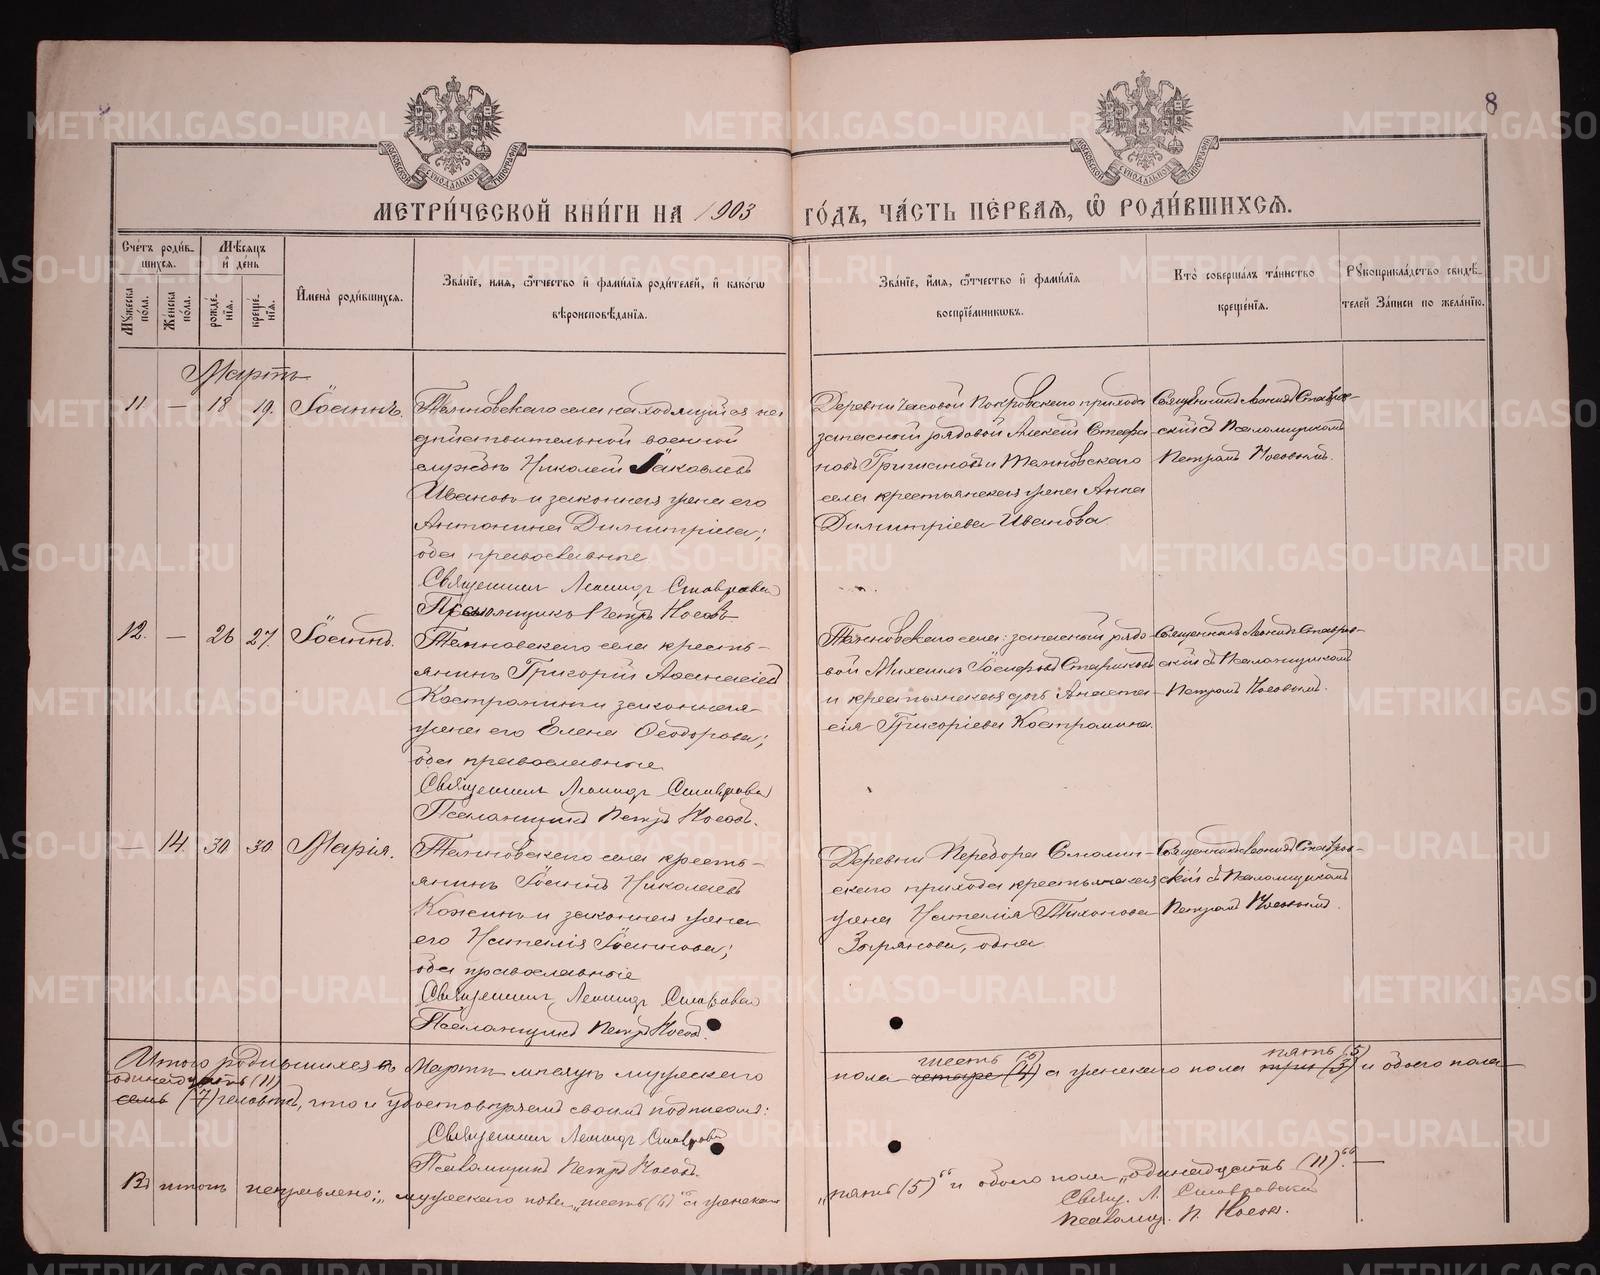 8
МОСКОВСКОЙ СѴНОДАЛЬНОЙ ТИПОГРАФІИ
МОСКОВСКОЙ СѴНОДАЛЬНОЙ ТИПОГРАФІИ
МЕТРИ́ЧЕСКОЙ КНИ́ГИ НА 1903 ГО́ДЪ, ЧА́СТЬ ПЕ́РВАЯ, Ѽ РОДИ́ВШИХСЯ.
Сче́тъ роди́в-
шихся.
Мꙋ́жеска по́ла.
Же́нска по́ла.
Мѣ́сяцъ
и҆ де́нь
рожде́-
нїя.
креще́-
нїя.
И҆мена̀ роди́вшихся.
Зва́нїе, имя, ѻ҆́тчество и҆ фами́лїя роди́телей, и҆ како́гѡ
вѣроисповѣ́данїя.
Зва́нїе, и҆́мя, ѻ҆́тчество и҆ фами́лїя
воспрїе́мниковъ.
Кто̀ соверша́лъ та́инство
креще́нїя.
Рꙋкоприкла́дство свидѣ́-
телей За́писи по жела́нїю.
Мартъ
11 — 18 19. Іоаннъ.
села находящійся на
дѣйствительной военной
службѣ Николай Іаковлевъ
Ивановъ и законная жена его
Антонина Димитріева;
оба православные
Священник Леонид Ставровский
Псаломщикъ Петръ Носовъ
Деревни Часовой Покровскаго прихода
запасный рядовой Алексій Стефа-
новъ и
села крестьянская жена Анна
Димитріева Иванова.
Священникъ Леонидъ Ставров-
скій съ Псаломщикомъ
Петромъ Носовымъ.
12. — 26 27. Іоаннъ.
села кресть-
янинъ Григорій Аѳанасіевъ
Костроминъ и законная
жена его Елена Ѳеодорова;
оба православные
Священник Леонид Ставровский
Псаломщикъ Петръ Носовъ.
села: запасный рядо-
вой Михаилъ Іосифовъ Стариковъ
и крестьянская дочь Анаста-
сія Григоріева Костромина.
Священникъ Леонидъ Ставров-
скій съ Псаломщикомъ
Петромъ Носовымъ.
— 14. 30 30 Марія.
села кресть-
янинъ Іоаннъ Николаевъ
Кожинъ и законная жена
его Наталія Іоаннова;
оба православные
Священник Леонид Ставровский
Псаломщикъ Петръ Носовъ.
Деревни Перебора Смолин-
скаго прихода крестьянская
жена Наталія Тихонова
Зырянова, одна
Священникъ Леонидъ Ставров-
скій съ Псаломщикомъ
Петромъ Носовымъ.
Итого родившихся въ Мартѣ мѣсяцѣ мужескаго
шесть (6) пять (5)
пола четыре (4) а женскаго пола три (3) и обоего пола
одинадцать (11)
семь (7) человѣкъ, что и удостовѣряемъ своимъ подписомъ:
Священник Леонид Ставровский
Псаломщикъ Петръ Носовъ.
Въ итогѣ исправлено: „мужескаго пола „шесть (6)“ а женскаго
„пять (5)“ и обоего пола „одинадцать (11)“. —
Свящ. Л. Ставровский
Псаломщ. П. Носовъ.